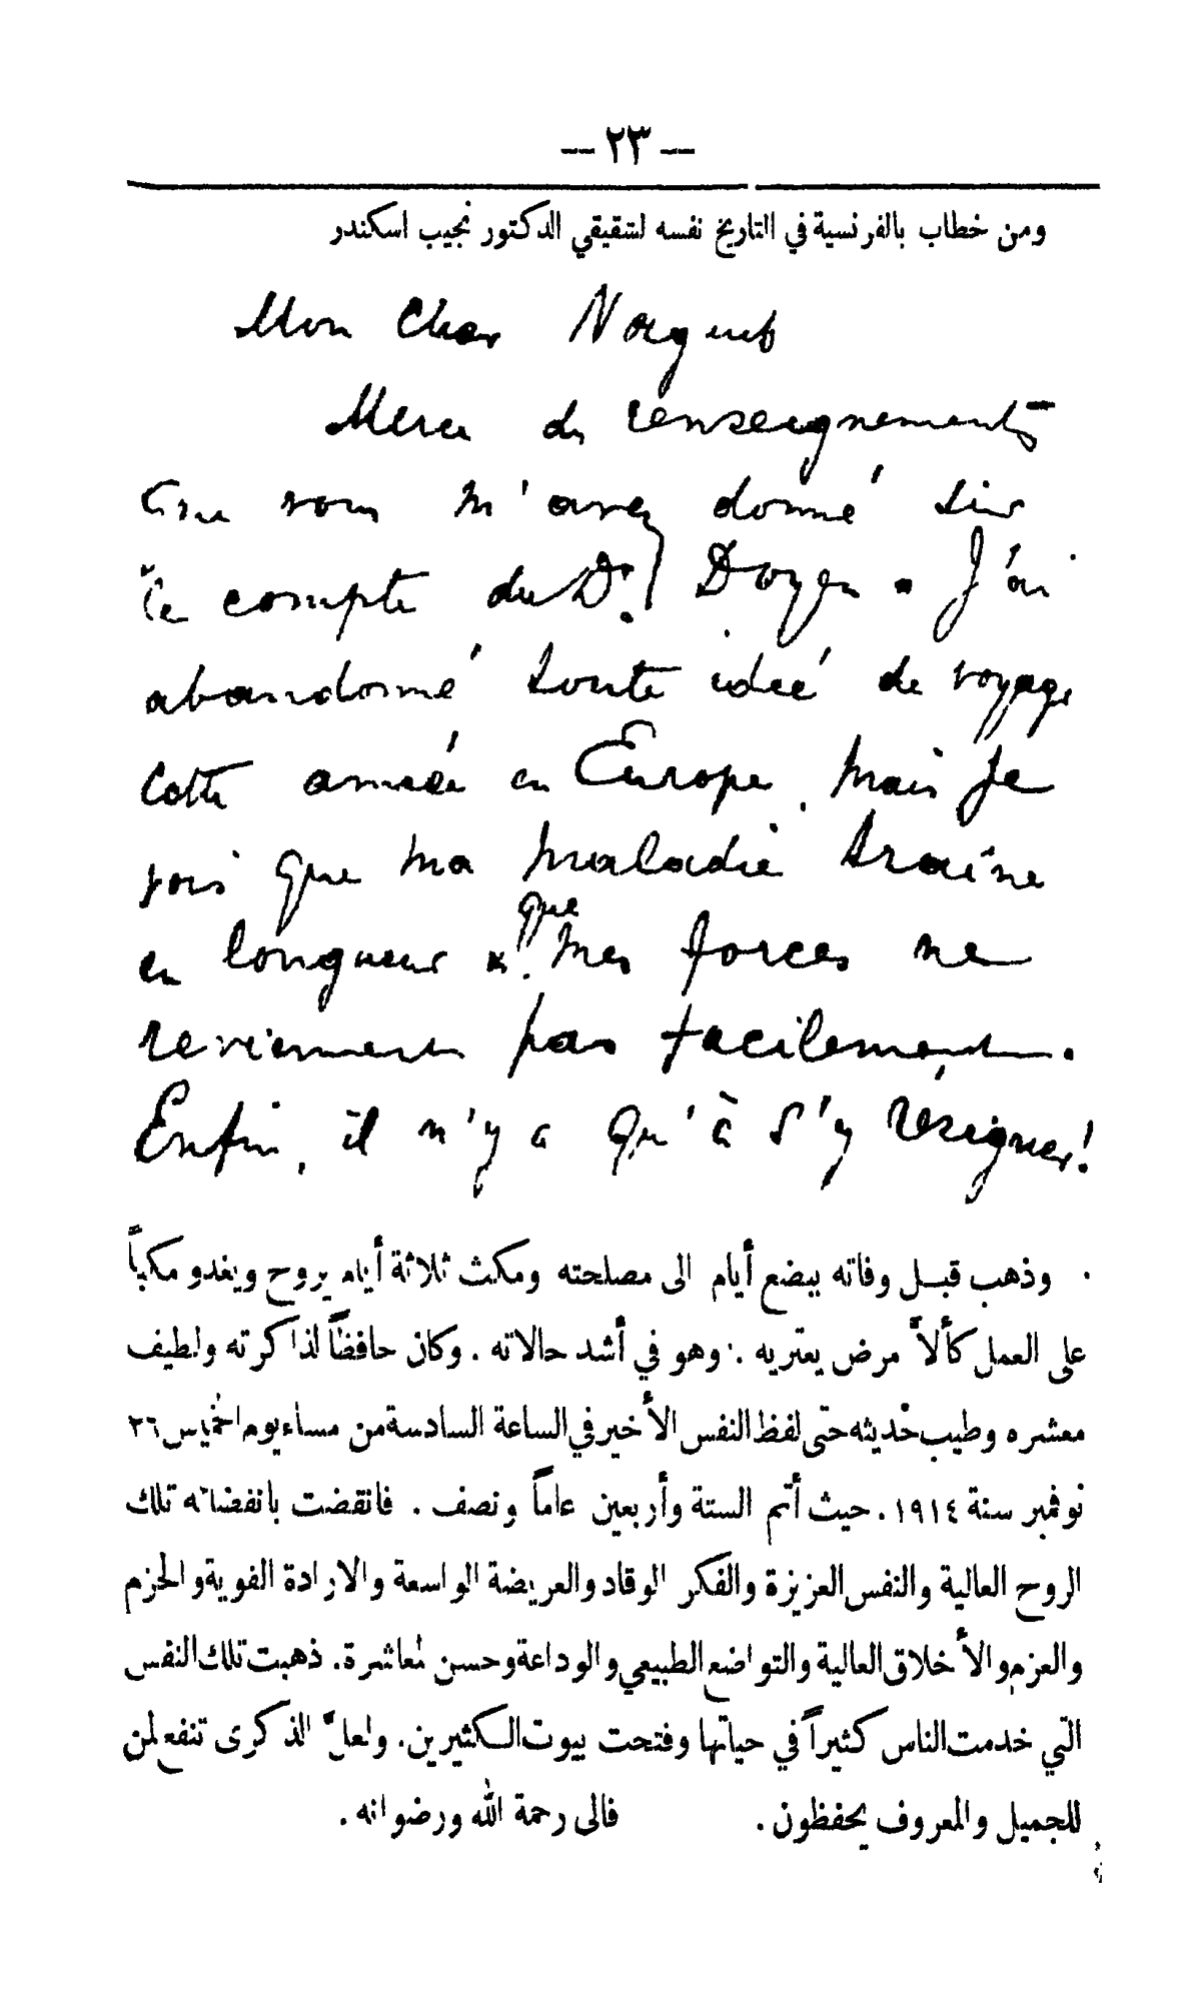 — ٢٣ —
ومن خطاب بالفرنسية في التاريخ نفسه لشقيقي الدكتور نجيب اسكندر
Mon Cher Naguib
Merci des renseignements
que vous m'avez donné sur
le compte du Dr. Doyen. J'ai
abandonné toute idée de voyage
cette année en Europe, mais je
vois que ma maladie traîne
en longueur & que mes forces ne
reviennent pas facilement.
Enfin, il n'y a qu'à s'y résigner!
وذهب قبل وفاته ببضع أيام الى مصلحته ومكث ثلاثة أيام يروح ويغدو مكباً
على العمل كألاّ مرض يعتريه . وهو في أشد حالاته . وكان حافظاً لذاكرته ولطيف
معشره وطيب حديثه حتى لفظ النفس الأخير في الساعة السادسة من مساء يوم الخميس ٢٦
نوفمبر سنة ١٩١٤ . حيث أتم الستة وأربعين عاماً ونصف . فانقضت بانقضائه تلك
الروح العالية والنفس العزيزة والفكر الوقاد والعريضة الواسعة والارادة القوية والحزم
والعزم والأخلاق العالية والتواضع الطبيعي والوداعة وحسن معاشرة . ذهبت تلك النفس
التي خدمت الناس كثيراً في حياتها وفتحت بيوت الكثيرين . ولعلّ الذكرى تنفع لمن
للجميل والمعروف يحفظون . فالى رحمة الله ورضوانه .